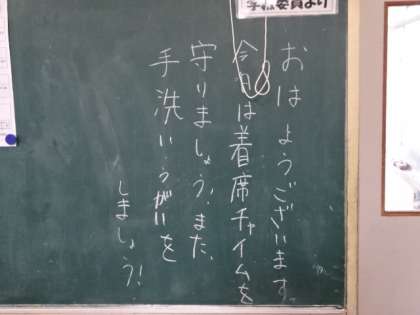 委員より
おはようございます。
今日は着席チャイムを
守りましょう!また、
手洗い・うがいを
しましょう!